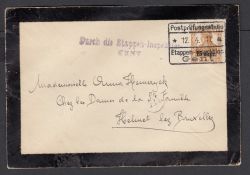 Durch die Etappen-Inspektion
GENT
Postprüfungsstelle
* 12. 4. 17 *
Etappen-Inspektion
Gent
Mademoiselle Anna Hemeryck
Chez les Dames de la Ste Famille
Helmet lez Bruxelles